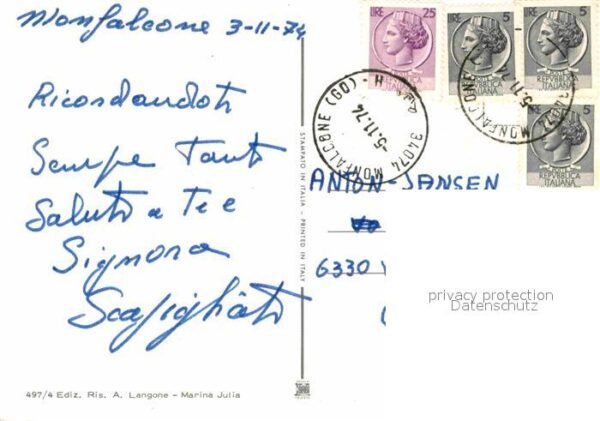 Monfalcone 3-11-74
Ricordandoti
Sempre Tanti
Saluti a Te e
Signora
LIRE 25
REPVBBLICA
ITALIANA
LIRE 5
REPVBBLICA
ITALIANA
LIRE 5
REPVBBLICA
ITALIANA
5
REPVBBLICA
ITALIANA
34074 MONFALCONE (GO) - H
-5.11.74
34074 MONFALCONE
-5.11.7
STAMPATO IN ITALIA - PRINTED IN ITALY
ANTON-JANSEN
6330
privacy protection
Datenschutz
497/4 Ediz. Ris. A. Langone - Marina Julia